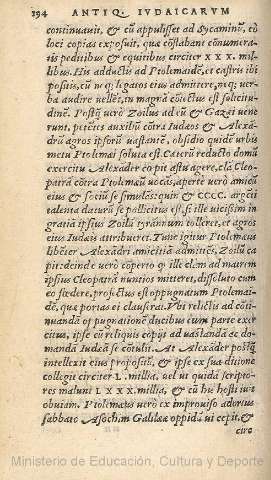 394 ANTIQ. IVDAICARVM
continuauit, & cũ appulisset ad Sycaminũ, eò
loci copias exposuit, qua cõstabant cõnumera-
tis peditibus & equitibus circiter XXX. mil-
libus. Hu adductis ad Ptolemaidẽ, et castris ibi
positis, cũ neq; legatos eius admitterẽt, neq; uer-
ba audire nellẽt, in magnã coiectus est solicitu-
dinẽ. Postq̃ uerò Zoilus ad eũ & Gazęi uene
runt, petẽtes auxiliũ cõtra Iudæos & Alexã-
drũ agros ipsorũ uastantẽ, obsidio quidẽ urbis
metu Ptolemæi soluta est. Cæterũ reducto domũ
exercitu Alexãder cœpit astu agere, clã Cleo-
patrã cõtra Ptolemæũ uocãs, apertè uerò amicũ
eius & sociũ se simulãs: quin & CCCC. argẽti
talenta daturũ se pollicitus est, si ille uicissim in
gratiã ipsius Zoilũ tyrannum tolleret, ac agros
eius Iudæis attribueret. Tunc igitur Ptolemæus
libẽter Alexãdri amicitiã admittẽs, Zoilũ ca
pit: deinde uerò coperto q̃ ille clam ad matrem
ipsius Cleopatrã nuntios mitteret, dissoluto cum
eo fœdere, profectus est oppugnatum Ptolemai-
dẽ, quæ portas ei clauserat. Vbi relictis ad cõti-
nuandã oppugnationẽ ducibus cum parte exer
citus, ipse cũ reliquis copijs ad uastandã ac do-
mandã Iudæã se cõtulit. At Alexãder postq̃
intellexit eius profectiõẽ, & ipse ex sua ditione
collegit circiter L. millia, uel ut quidã scripto-
res malunt LXXX. millia, & cũ his hosti iuit
obuiam. Ptolemæus uerò ex improuiso adortus
sabbato Asochim Galilææ oppidũ ui cepit, &
circi
Ministerio de Educación, Cultura y Deporte